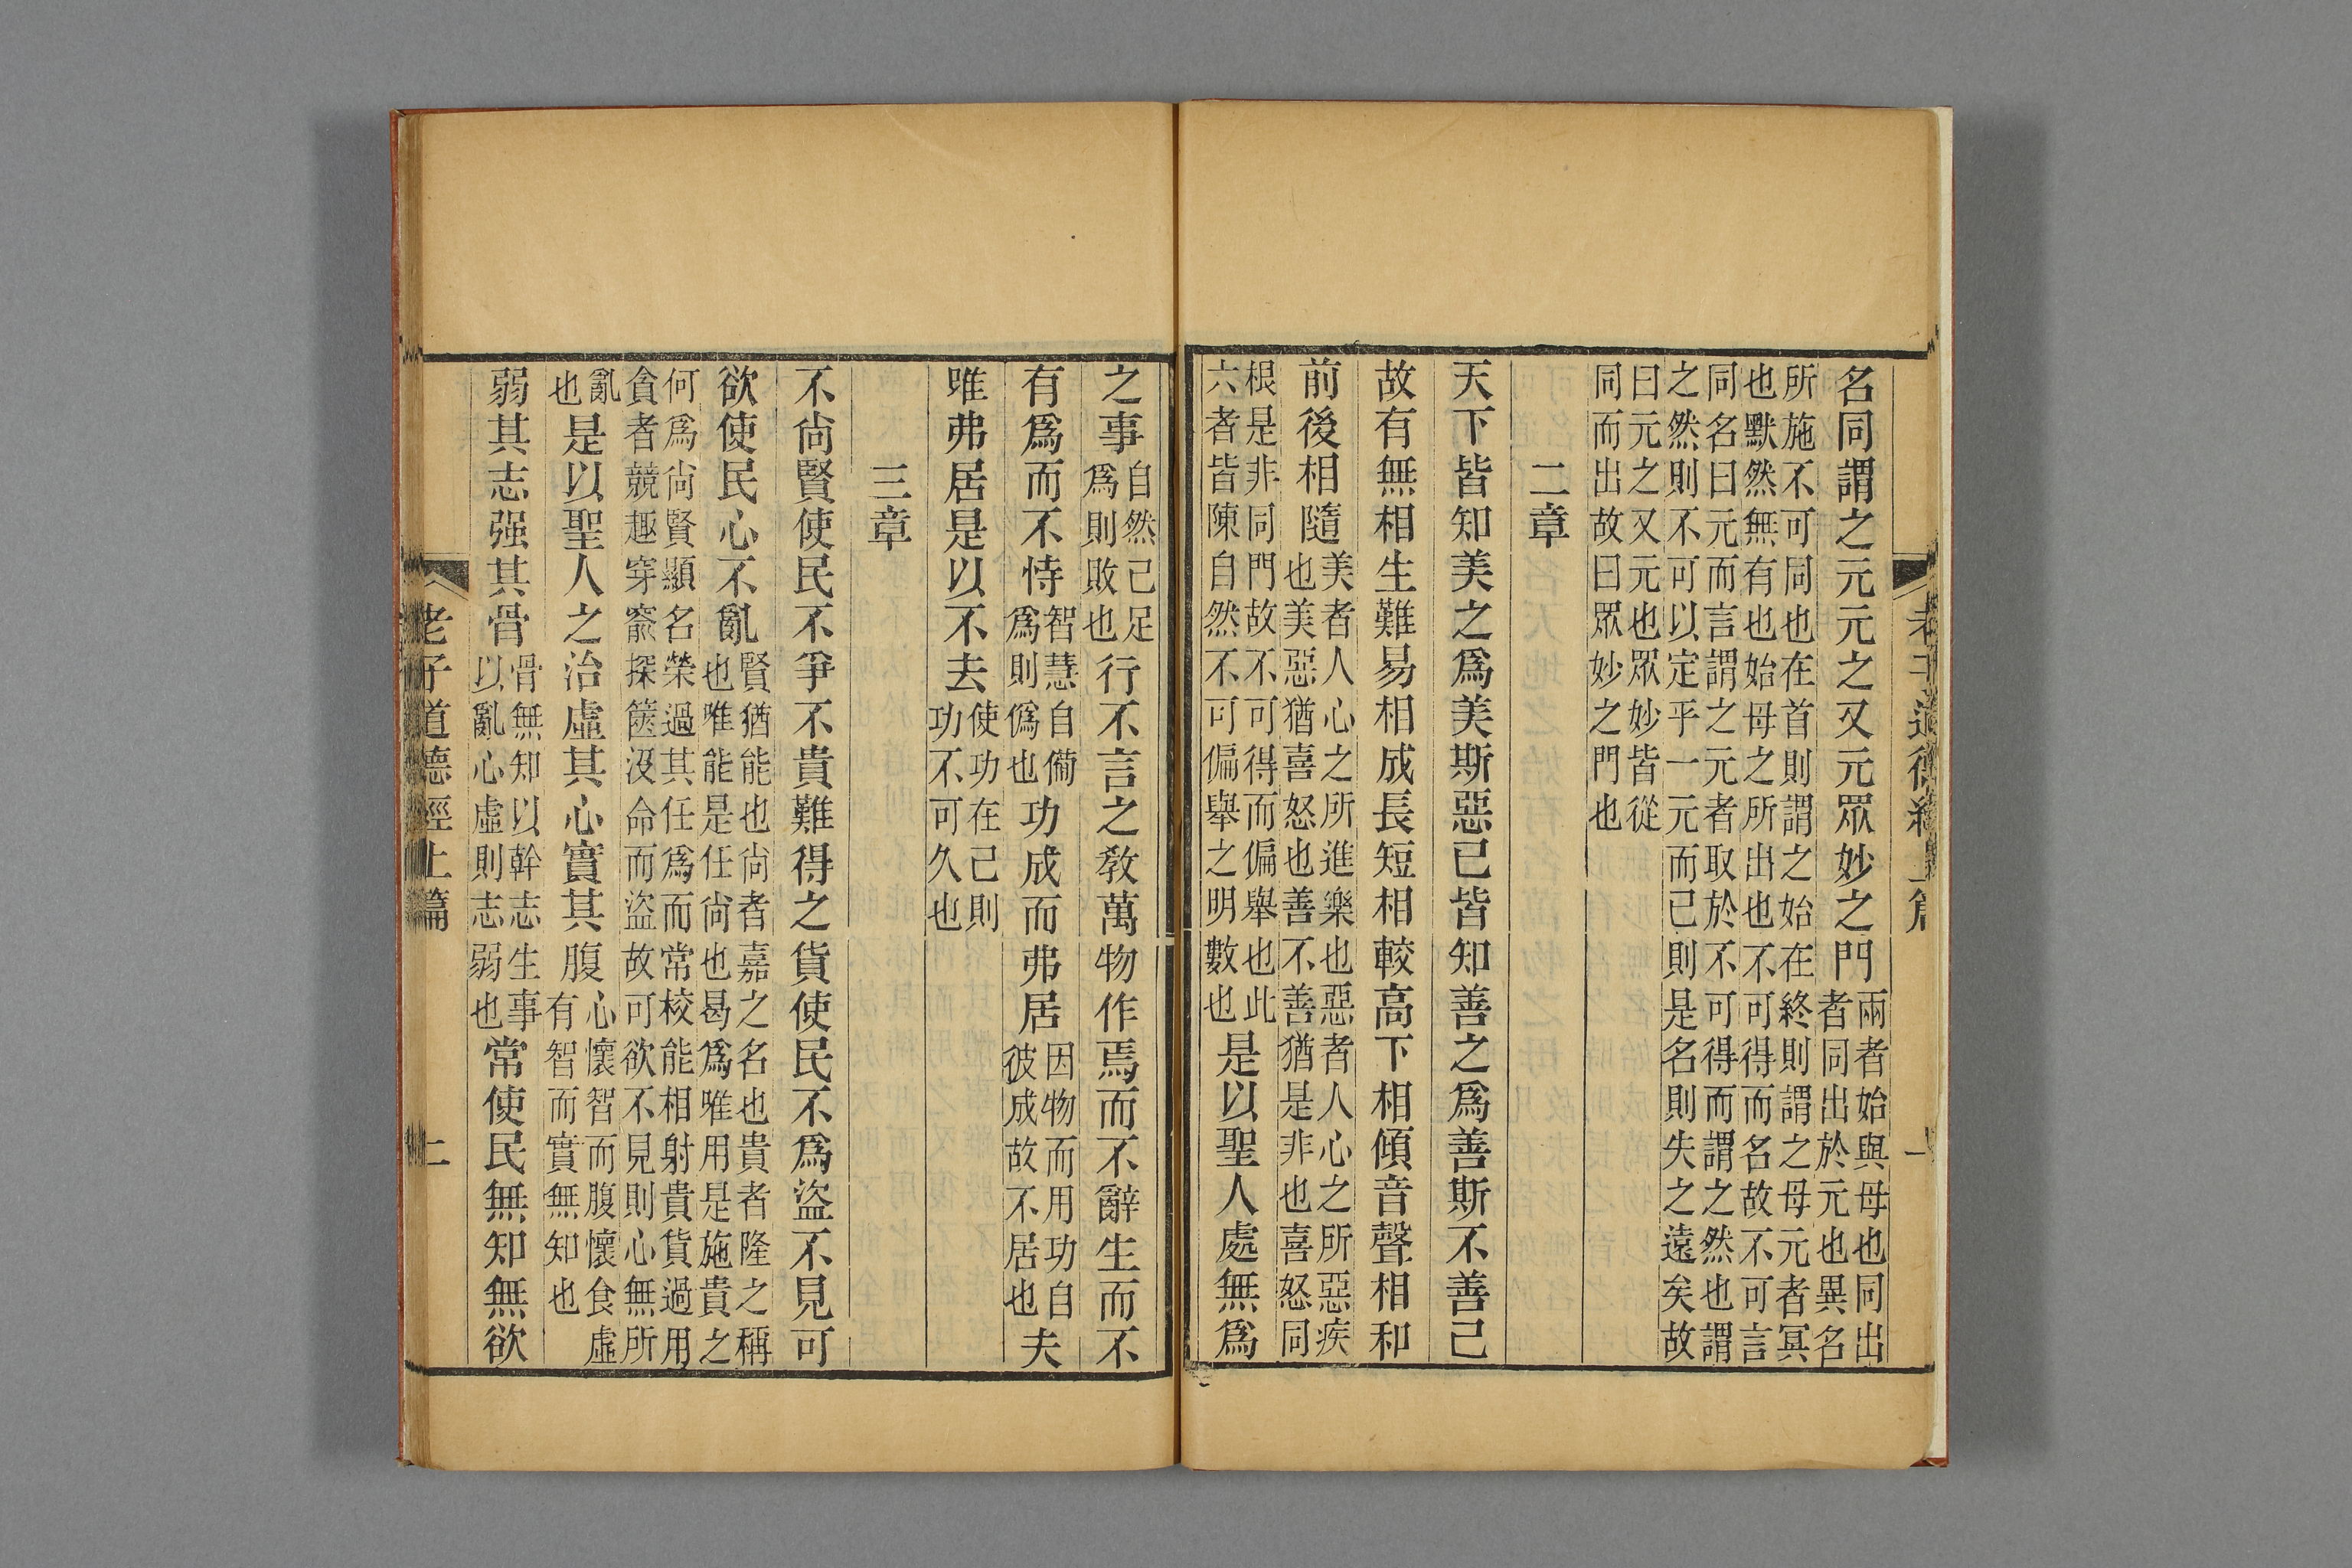 老子道德經上篇 一
名同謂之元元之又元眾妙之門兩者始與母也同出者同出於元也異名
所施不可同也在首則謂之始在終則謂之母元者冥
也默然無有也始母之所出也不可得而名故不可言
同名曰元而言謂之元者取於不可得而謂之然也謂
之然則不可以定乎一元而已則是名則失之遠矣故
曰元之又元也眾妙皆從
同而出故曰眾妙之門也
二章
天下皆知美之爲美斯惡已皆知善之爲善斯不善已
故有無相生難易相成長短相較高下相傾音聲相和
前後相隨美者人心之所進樂也惡者人心之所惡疾也美惡猶喜怒也善不善猶是非也喜怒同
根是非同門故不可得而偏舉也此六者皆陳自然不可偏舉之明數也是以聖人處無爲
之事自然已足爲則敗也行不言之教萬物作焉而不辭生而不
有爲而不恃智慧自備爲則僞也功成而弗居因物而用功自彼成故不居也夫
唯弗居是以不去使功在己則功不可久也
三章
不尚賢使民不爭不貴難得之貨使民不爲盜不見可
欲使民心不亂賢猶能也尚者嘉之名也貴者隆之稱也唯能是任尚也曷爲唯用是施貴之
何爲尚賢顯名榮過其任爲而常校能相射貴貨過用
貪者競趣穿窬探篋沒命而盜故可欲不見則心無所
亂也是以聖人之治虛其心實其腹心懷智而腹懷食虛有智而實無知也
弱其志强其骨骨無知以幹志生事以亂心虛則志弱也常使民無知無欲
老子道德經上篇 二